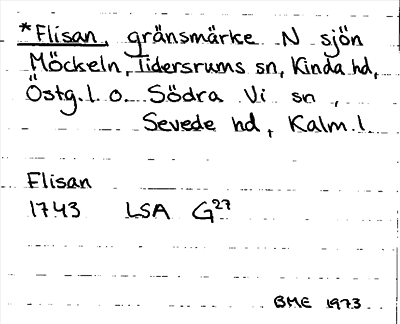 *Flisan, gränsmärke N sjön
Möckeln, Tidersrums sn, Kinda hd,
Östg. l. o. Södra Vi sn,
Sevede hd, Kalm. l.
Flisan
1743 LSA G27
BME 1973